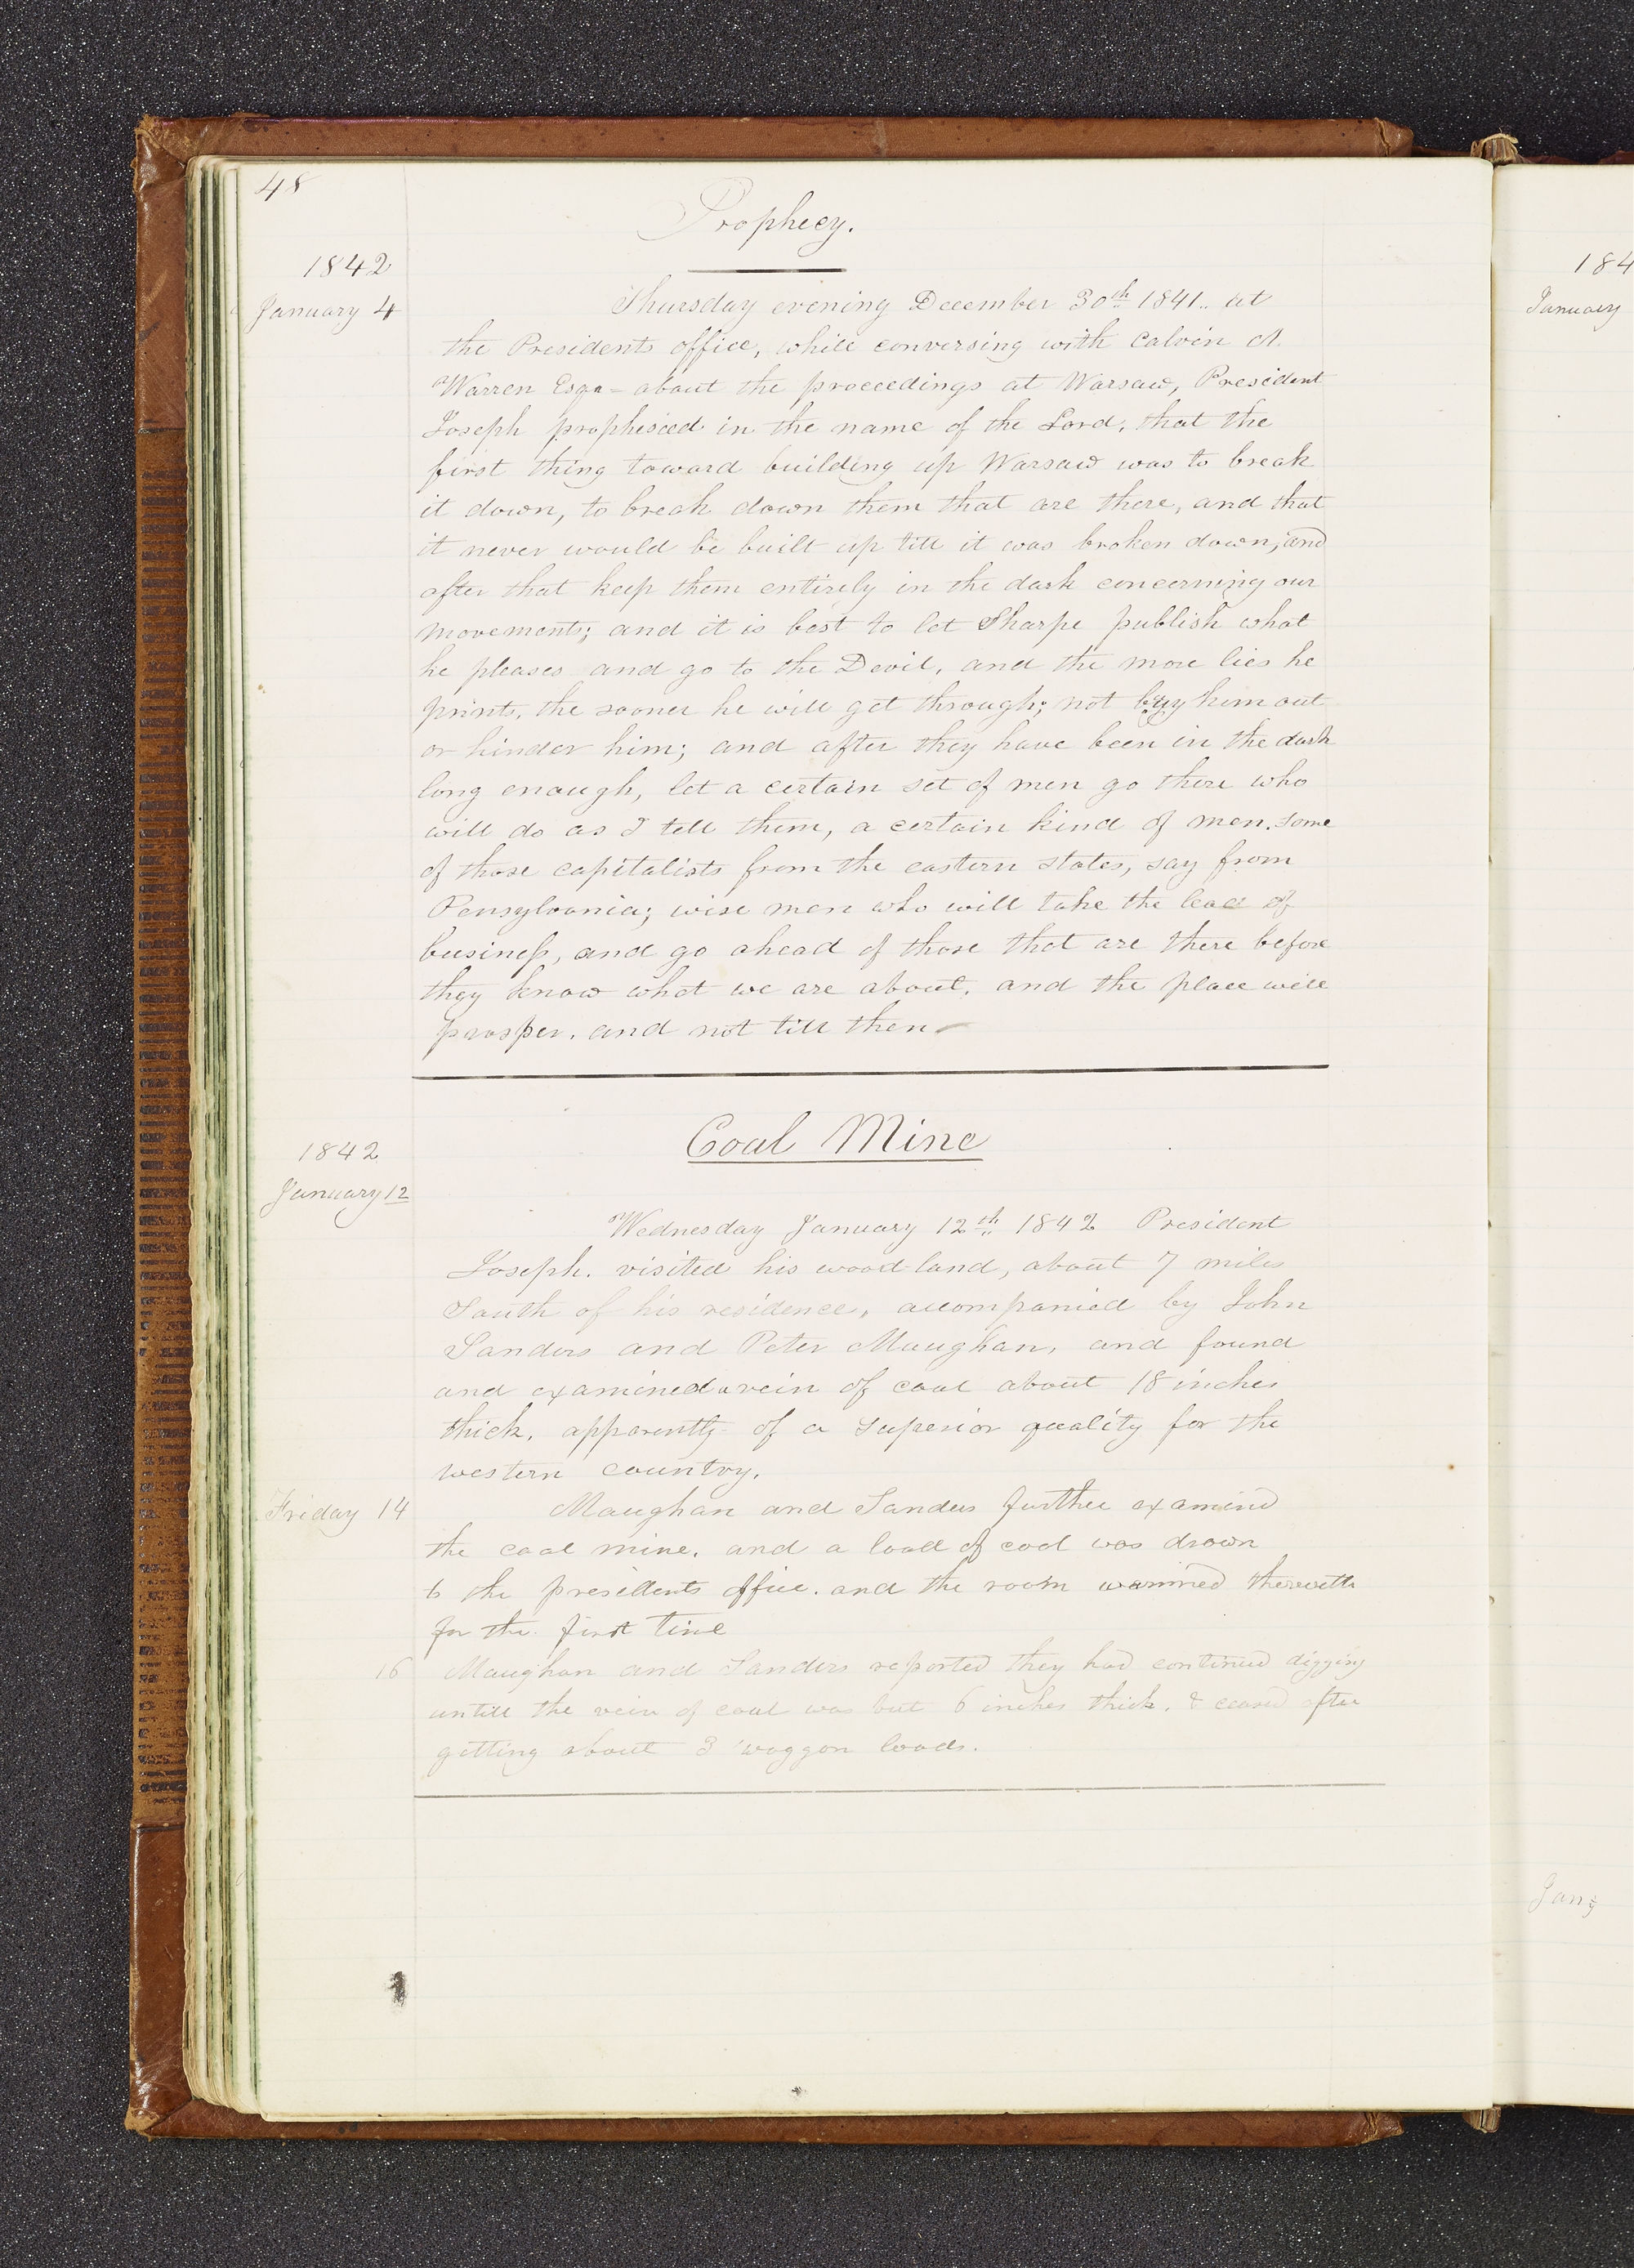 48
Prophecy.
1842
January 4
Thursday evening December 30th 1841.. at
the Presidents office, while conversing with Calvin A.
Warren Esqr= about the proceedings at Warsaw, President
Joseph prophesied in the name of the Lord, that the
first thing toward building up Warsaw was to break
it down, to break down them that are there, and that
it never would be built up till it was broken down, and
after that keep them entirely in the dark concerning our
movements; and it is best to let Sharpe publish what
he pleases and go to the Devil, and the more lies he
prints, the sooner he will get through; not buy him out
or hinder him; and after they have been in the dark
long enough, let a certain set of men go there who
will do as I tell them, a certain kind of men, some
of those capitalists from the eastern states, say from
Pensylvania; wise men who will take the lead of
business, and go ahead of those that are there before
they know what we are about, and the place will
prosper, and not till then
Coal Mine
1842
January 12
Wednesday January 12th 1842 President
Joseph. visited his wood-land, about 7 miles
South of his residence, accompanied by John
Sanders and Peter Maughan, and found
and examined a vein of coal about 18 inches
thick, apparently of a superior quality for the
western country.
Friday 14 Maughan and Sanders further examined
the coal mine, and a load of coal was drawn
to the presidents office. and the room warmed therewith
for the first time
16 Maughan and Sanders reported they had continued digging
untill the vein of coal was but 6 inches thick, & ceased after
getting about 3 waggon loads.
184
January
Jany